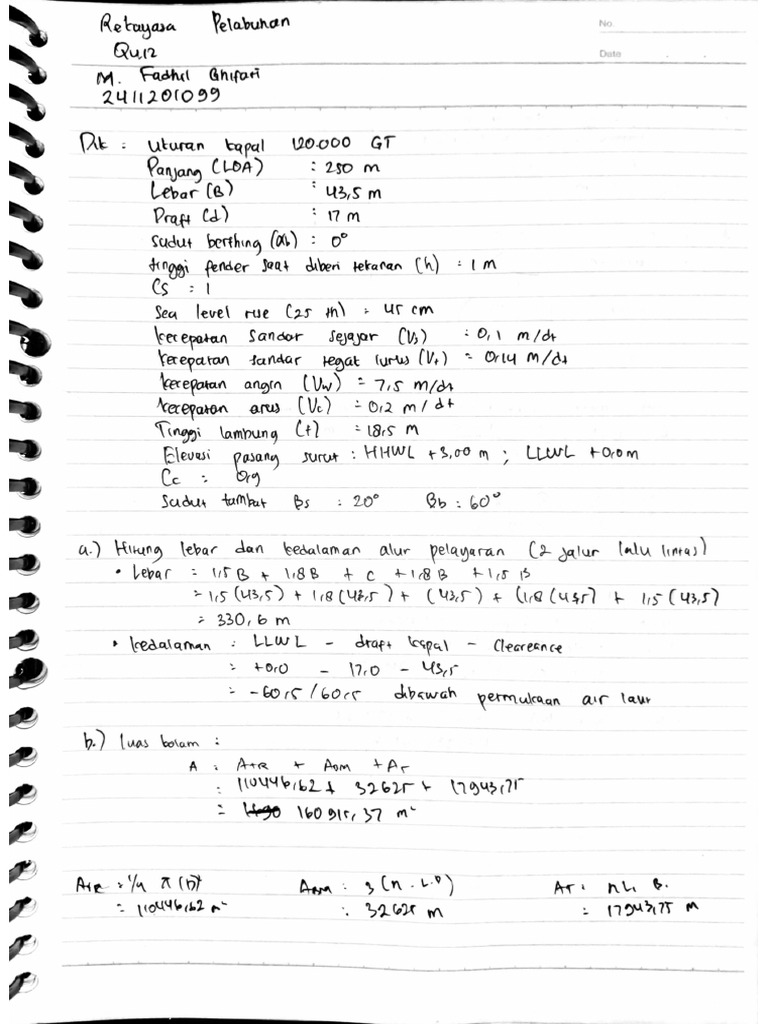 Rekayasa Pelabuhan
No.
Quiz
Date
M. Fadhil Ghifari
2411201099
Dik : Ukuran kapal 120.000 GT
Panjang (LOA) : 250 m
Lebar (B) : 43,5 m
Draft (d) : 17 m
Sudut berthing (αb) : 0°
tinggi fender saat diberi tekanan (h) : 1 m
Cs : 1
Sea level rise (25 th) : 45 cm
Kecepatan Sandar sejajar (Vs) : 0,1 m/dt
Kecepatan sandar tegak lurus (Vt) = 0,14 m/dt
Kecepatan angin (Vw) = 7,5 m/dt
Kecepatan arus (Vc) = 0,2 m/dt
Tinggi lambung (f) = 18,5 m
Elevasi pasang surut : HHWL +3,00 m ; LLWL +0,0 m
Cc : 0,9
Sudut tambat Bs : 20° Bb : 60°
a.) Hitung lebar dan kedalaman alur pelayaran (2 jalur lalu lintas)
• Lebar : 1,5 B + 1,8 B + C + 1,8 B + 1,5 B
= 1,5 (43,5) + 1,8 (43,5) + (43,5) + (1,8 (43,5) + 1,5 (43,5)
= 330,6 m
• Kedalaman : LLWL – draft kapal – Cleareance
= +0,0 – 17,0 – 43,5
= -60,5 / 60,5 dibawah permukaan air laut
b.) luas kolam :
A : ATR + ABM + AT
: 110446,62 + 32625 + 17943,75
= 160915,37 m²
ATR : 1/4 π (D)² ABM : 3 (n . L.B) AT : nL B.
= 110446,62 m² : 32625 m = 17943,75 m